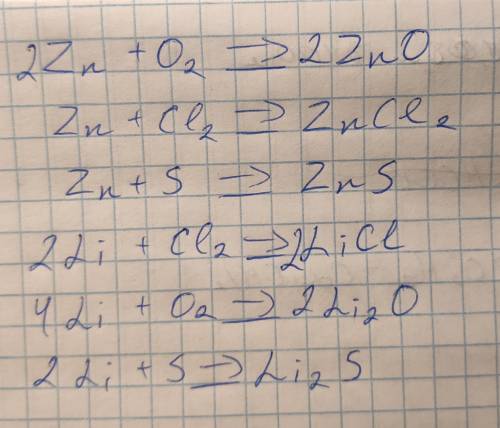 2Zn + O₂ => 2ZnO
Zn + Cl₂ => ZnCl₂
Zn + S => ZnS
2Li + Cl₂ => 2LiCl
4Li + O₂ => 2Li₂O
2Li + S => Li₂S